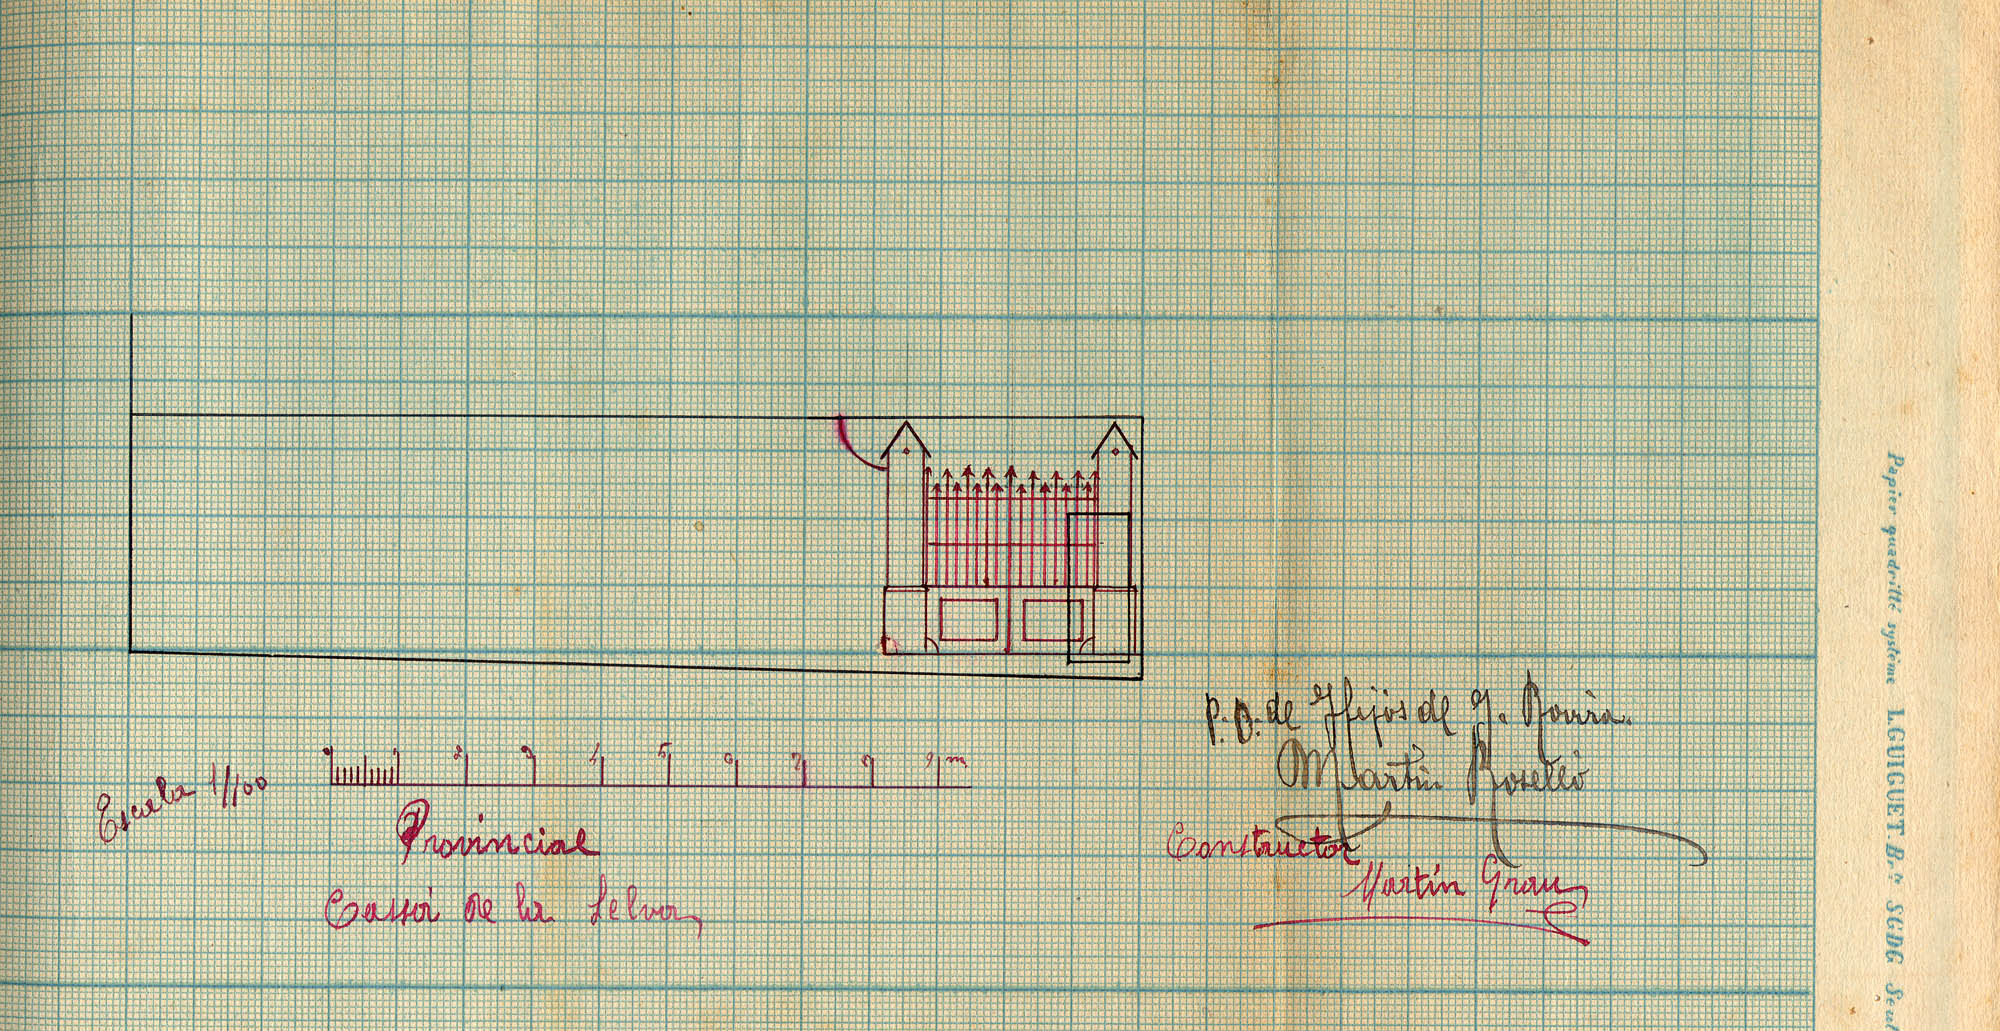 Escala 1/100
0 1 2 3 4 5 6 7 8 9 m
Provincial
Cassá de la Selva
P.O. de Hijos de J. Rovira.
Martín Roselló
Constructor
Martín Grau
Papier quadrillé système L. GUIGUET B.té SGDG